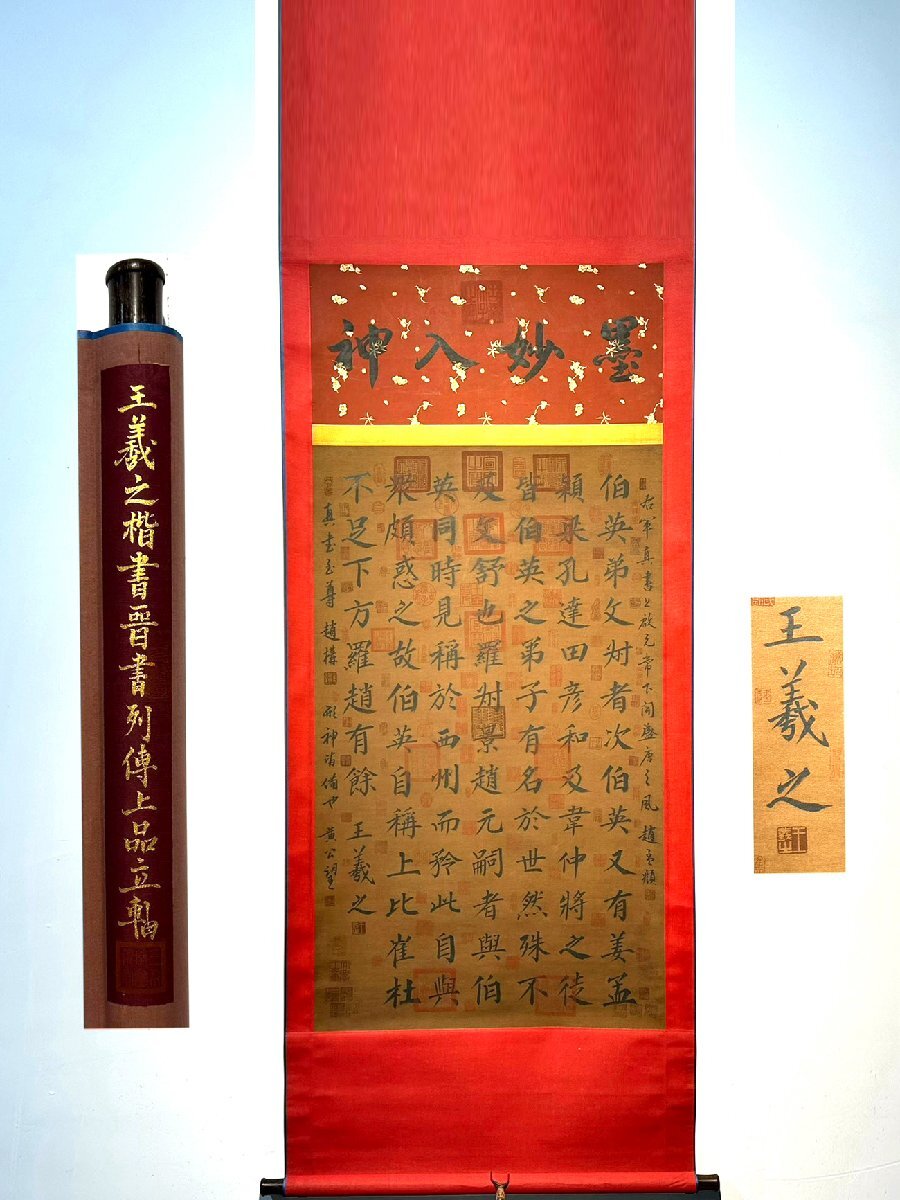 王羲之楷書晉書列傳上品立軸
墨妙入神
右軍真書上啟元常下開盛唐之風 趙孟頫
伯英弟文対者次伯英又有姜孟
穎梁孔達田彦和及韋仲將之徒
皆伯英之弟子有名於世然殊不
及文舒也羅対景趙元嗣者與伯
英同時見稱於西州而矜此自與
衆頗惑之故伯英自稱上比崔杜
不足下方羅趙有餘 王羲之
真書至尊 趙構 形神皆備也 黃公望
王羲之